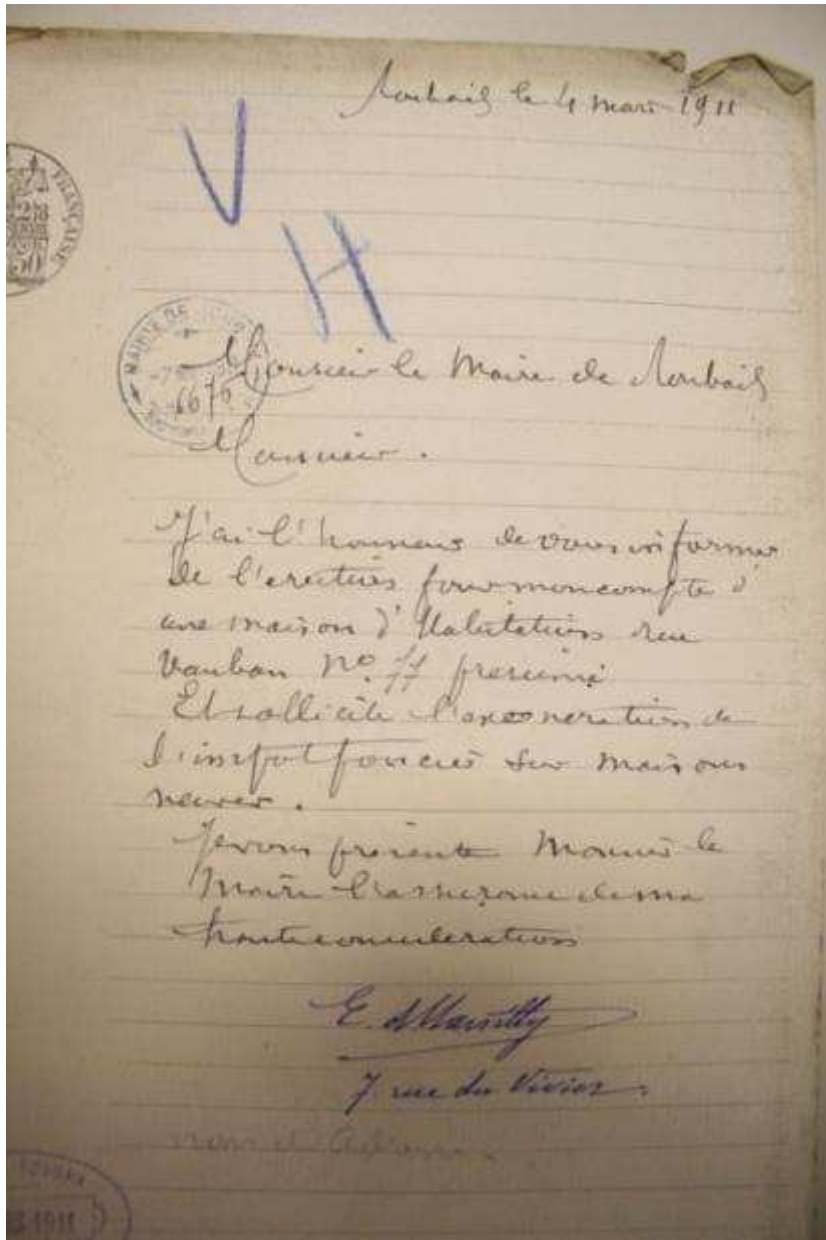 Roubaix le 4 mars 1911
V
H
FRANÇAISE
50
MAIRIE DE
6676
Monsieur le Maire de Roubaix
Monsieur.
J'ai l'honneur de vous informer
de l'erection pour mon compte d'
une maison d'habitation rue
Vauban No 77
Et sollicite l'exoneration de
l'impot foncier sur maisons
neuves.
Je vous présente Monsieur le
Maire l'assurance de ma
haute consideration
7 rue du Vivier.
nom et Adresse
1911